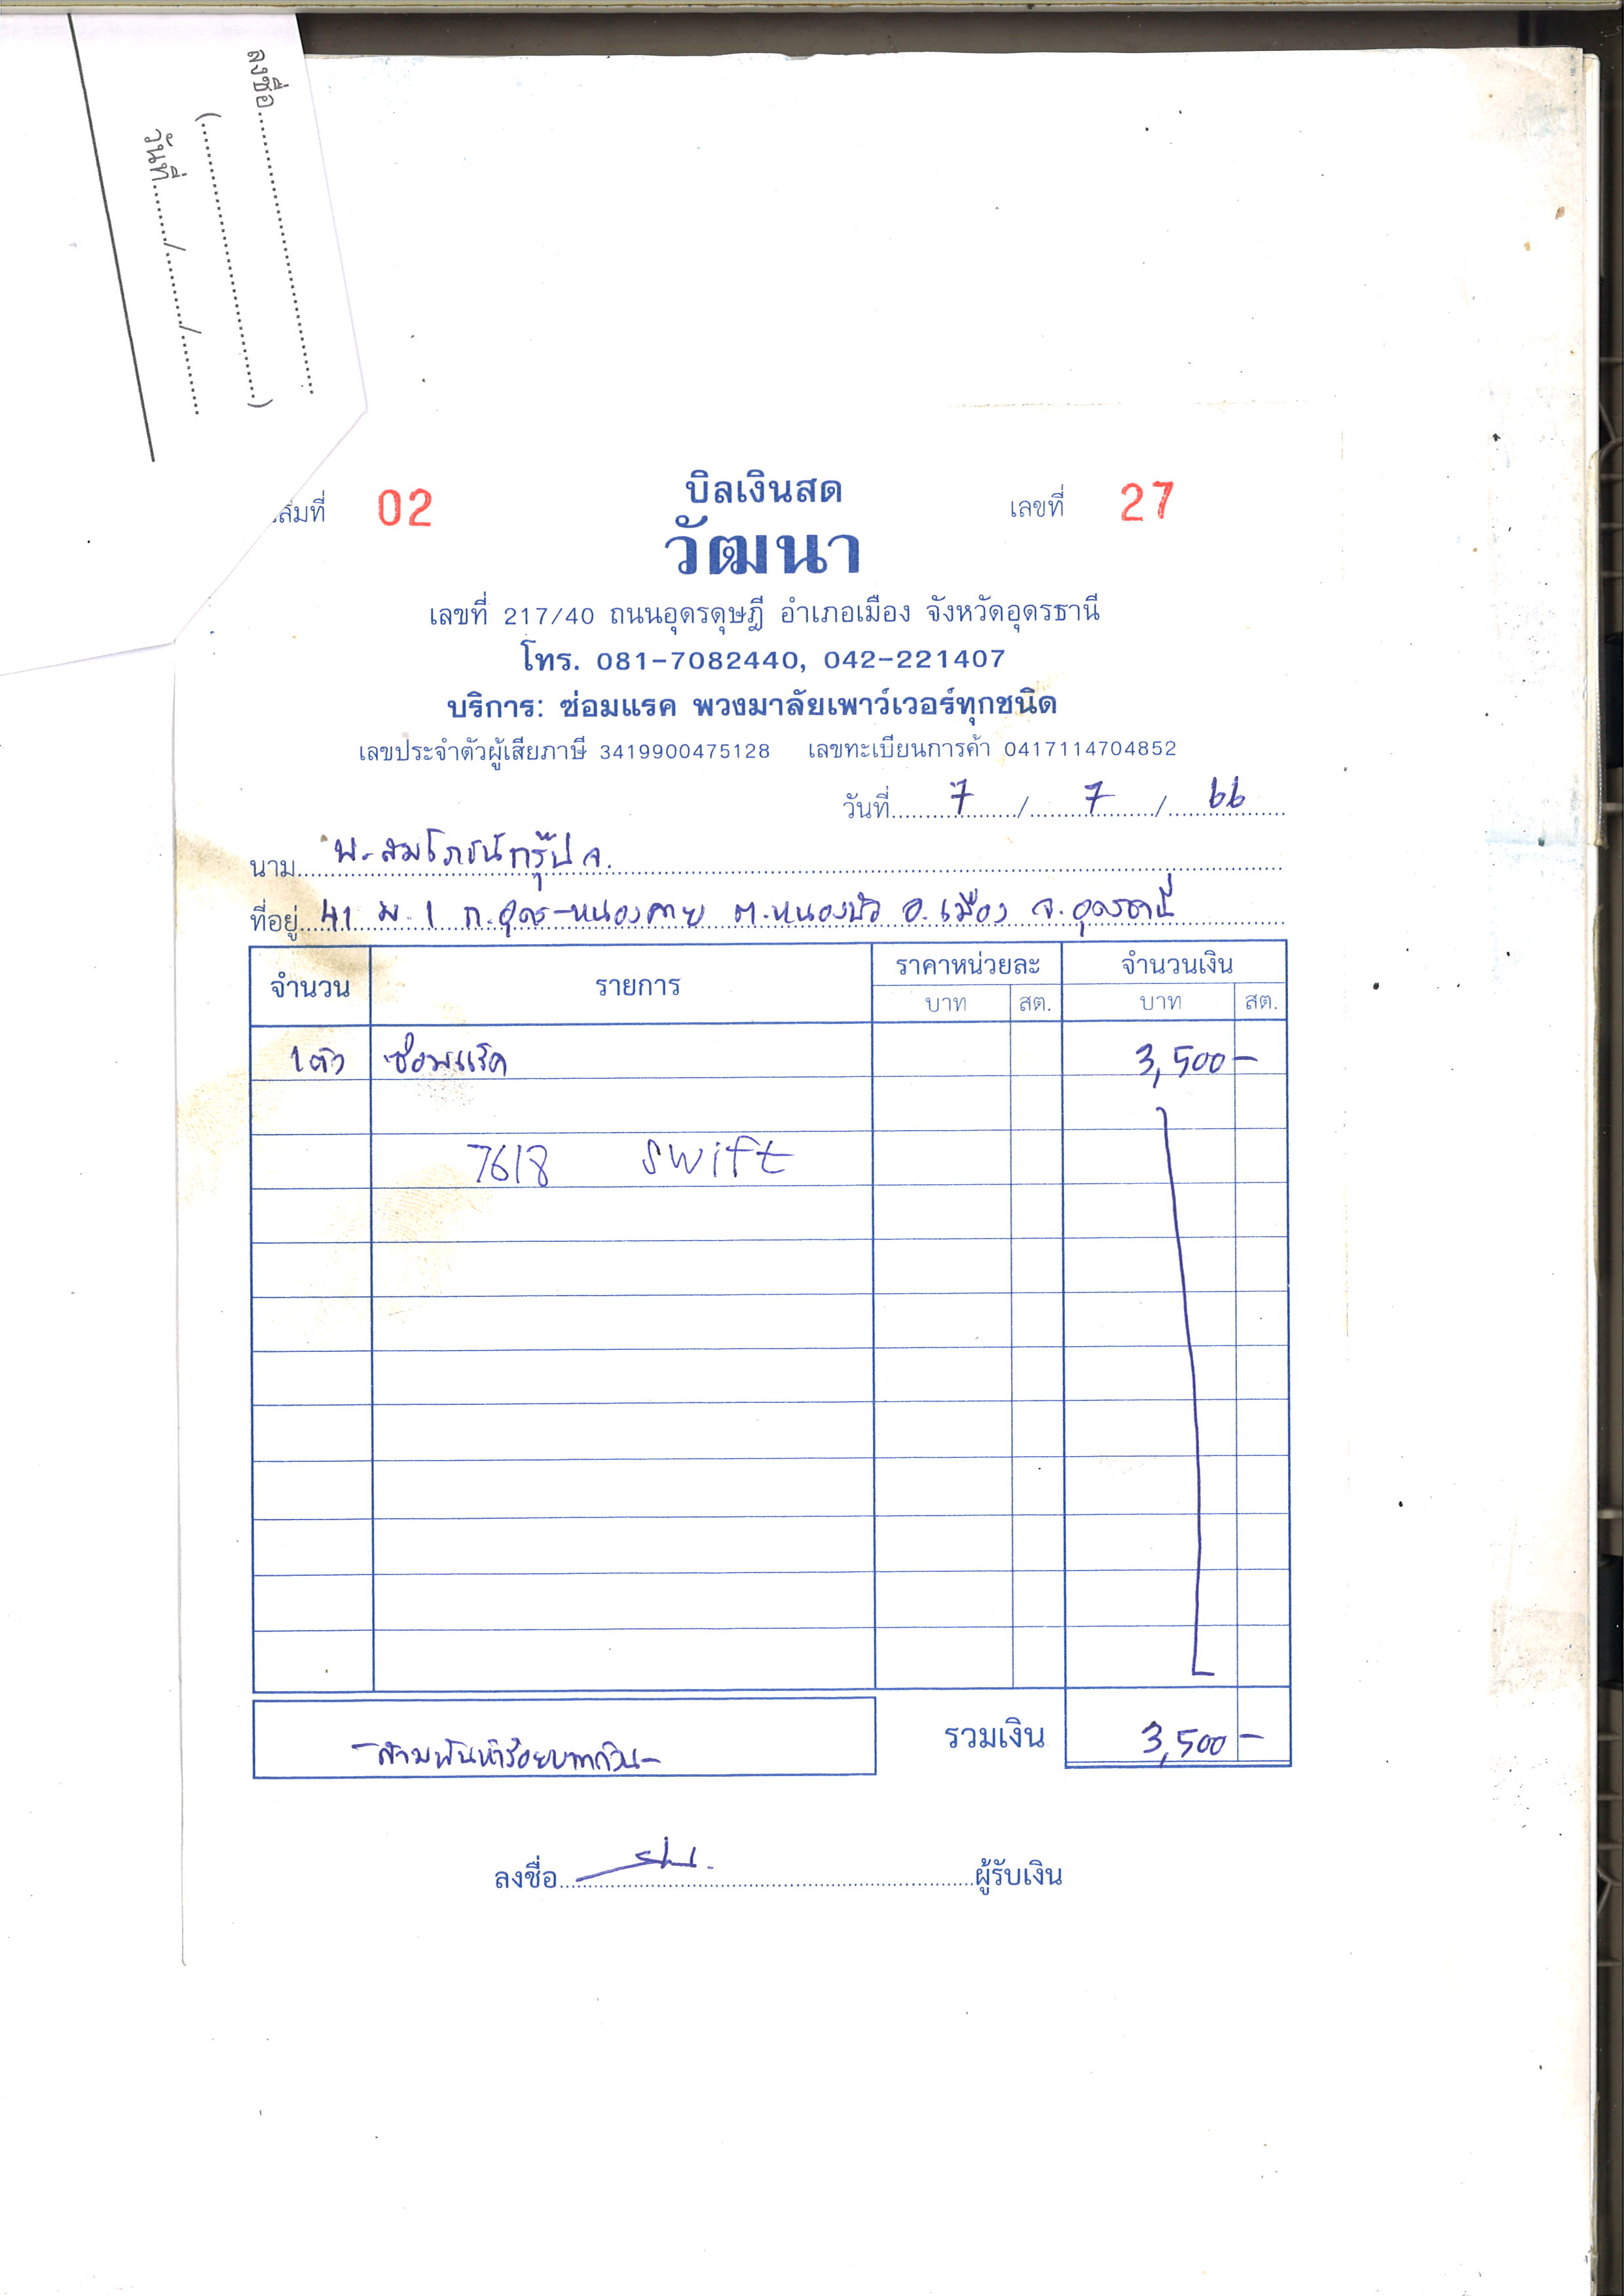 ลงชื่อ
(....................................)
วันที่........./........./.........
เล่มที่ 02
บิลเงินสด
เลขที่ 27
วัฒนา
เลขที่ 217/40 ถนนอุดรดุษฎี อำเภอเมือง จังหวัดอุดรธานี
โทร. 081-7082440, 042-221407
บริการ: ซ่อมแรค พวงมาลัยเพาว์เวอร์ทุกชนิด
เลขประจำตัวผู้เสียภาษี 3419900475128 เลขทะเบียนการค้า 0417114704852
วันที่ 7 / 7 / 66
นาม
ที่อยู่ 41 ม.1 ถ.อุดร-หนองคาย ต.หนองบัว อ.เมือง จ.อุดรธานี
จำนวน รายการ ราคาหน่วยละ จำนวนเงิน
บาท สต. บาท สต.
1 ตัว ซ่อมแร็ค 3,500 -
7618 swift
-สามพันห้าร้อยบาทถ้วน- รวมเงิน 3,500 -
ลงชื่อ ผู้รับเงิน